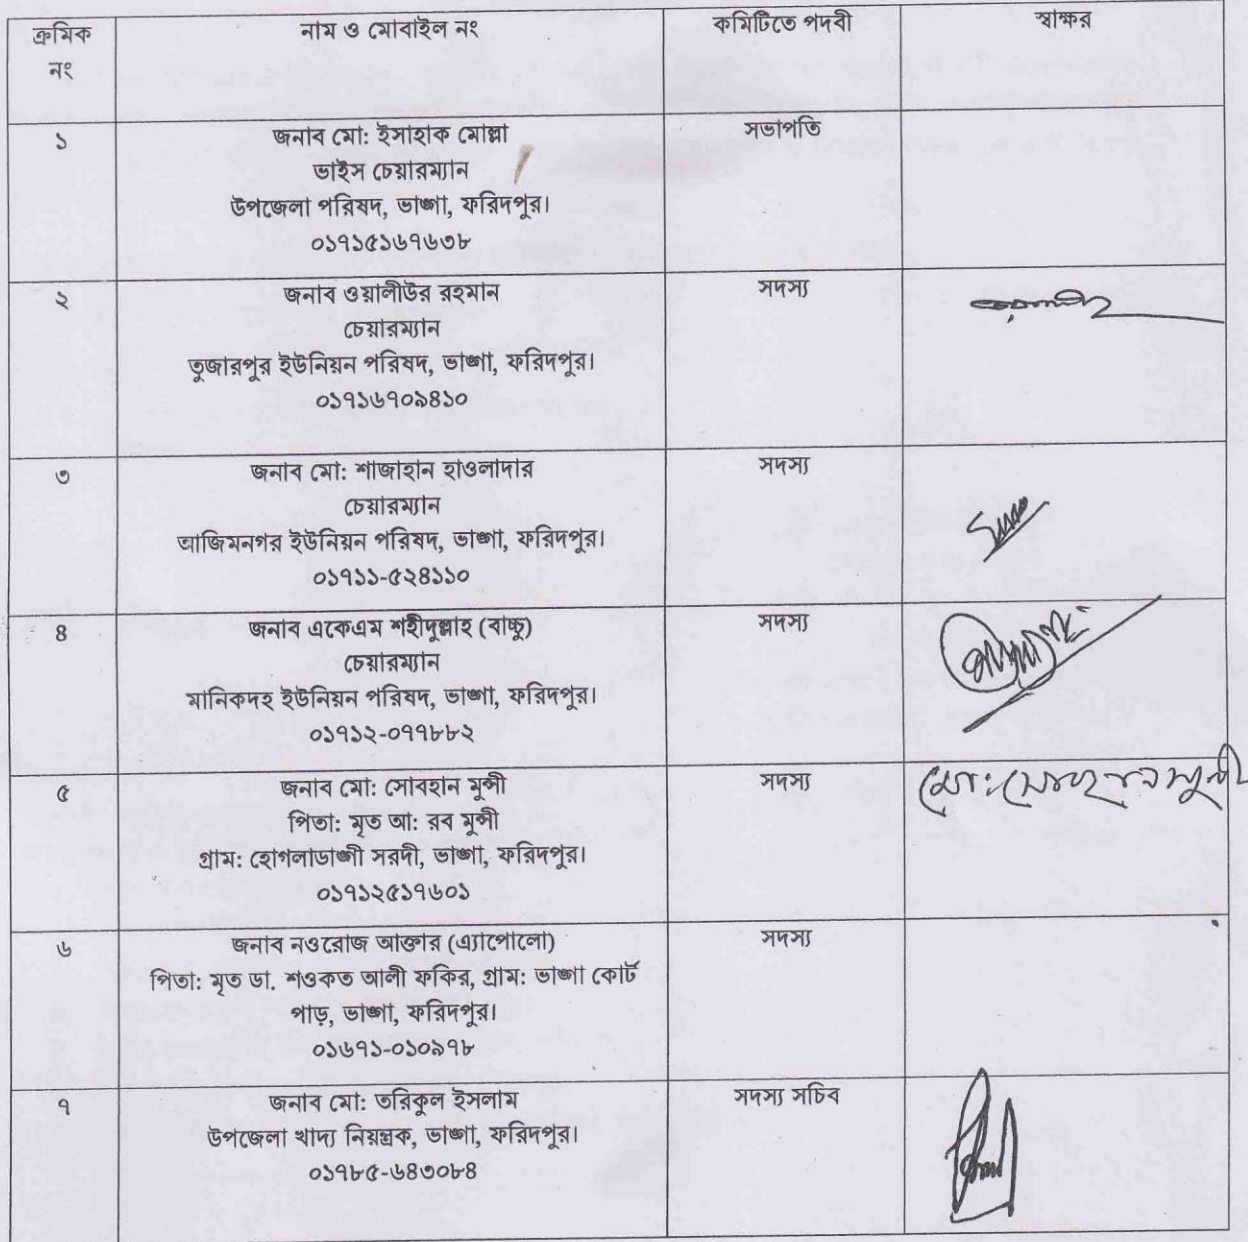 ক্রমিক নং
নাম ও মোবাইল নং
কমিটিতে পদবী
স্বাক্ষর
১
জনাব মো: ইসাহাক মোল্লা
ভাইস চেয়ারম্যান
উপজেলা পরিষদ, ভাঙ্গা, ফরিদপুর।
০১৭১৫১৬৭৬৩৮
সভাপতি
২
জনাব ওয়ালীউর রহমান
চেয়ারম্যান
তুজারপুর ইউনিয়ন পরিষদ, ভাঙ্গা, ফরিদপুর।
০১৭১৬৭০৯৪১০
সদস্য
৩
জনাব মো: শাজাহান হাওলাদার
চেয়ারম্যান
আজিমনগর ইউনিয়ন পরিষদ, ভাঙ্গা, ফরিদপুর।
০১৭১১-৫২৪১১০
সদস্য
৪
জনাব একেএম শহীদুল্লাহ (বাচ্চু)
চেয়ারম্যান
মানিকদহ ইউনিয়ন পরিষদ, ভাঙ্গা, ফরিদপুর।
০১৭১২-০৭৭৮৮২
সদস্য
৫
জনাব মো: সোবহান মুন্সী
পিতা: মৃত আ: রব মুন্সী
গ্রাম: হোগলাডাঙ্গী সরদী, ভাঙ্গা, ফরিদপুর।
০১৭১২৫১৭৬০১
সদস্য
মো: সোবহান মুন্সী
৬
জনাব নওরোজ আক্তার (এ্যাপোলো)
পিতা: মৃত ডা. শওকত আলী ফকির, গ্রাম: ভাঙ্গা কোর্ট
পাড়, ভাঙ্গা, ফরিদপুর।
০১৬৭১-০১০৯৭৮
সদস্য
৭
জনাব মো: তরিকুল ইসলাম
উপজেলা খাদ্য নিয়ন্ত্রক, ভাঙ্গা, ফরিদপুর।
০১৭৮৫-৬৪৩০৮৪
সদস্য সচিব